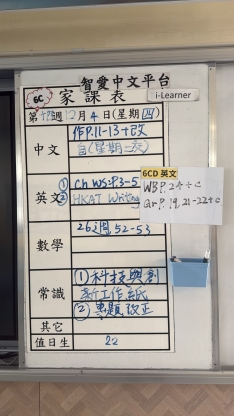 智愛中文平台
6C 家課表 i-Learner
12月4日(星期四)
中文
作P.11-13+改
英文
① Ch WS:P.3-5
② HKAT Writing
6CD 英文
WB P.24+c
Gr P.19,21-22+c
數學
26週 52-53
常識
①科技與創
新工作紙
②專題改正
其它
值日生 22